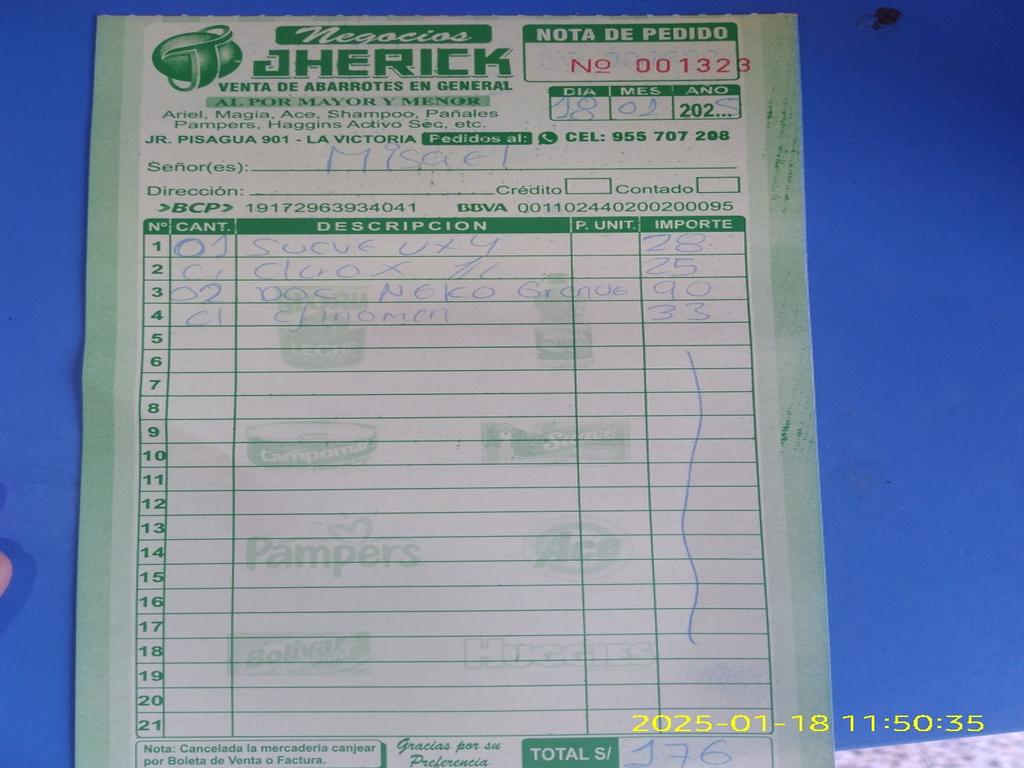 Negocios
JHERICK
VENTA DE ABARROTES EN GENERAL
AL POR MAYOR Y MENOR
Ariel, Magia, Ace, Shampoo, Pañales
Pampers, Haggins Activo Sec, etc.
NOTA DE PEDIDO
Nº 001323
DIA MES AÑO
18 01 202...5
JR. PISAGUA 901 - LA VICTORIA Pedidos al: CEL: 955 707 208
Señor(es): Misael
Dirección: Crédito Contado
>BCP> 19172963934041 BBVA 001102440200200095
Nº CANT. DESCRIPCION P. UNIT. IMPORTE
1 01 SUAVE UX4 28
2 01 Clorox 25
3 02 90
4 01 33
5
6
7
8
9
10
11
12
13
14
15
16
17
18
19
20
21
LECHE
Campomar
Suave
Pampers
Ace
Bolivar
HUGGIES
Nota: Cancelada la mercaderia canjear
por Boleta de Venta o Factura.
Gracias por su
Preferencia
TOTAL S/ 176
2025-01-18 11:50:35